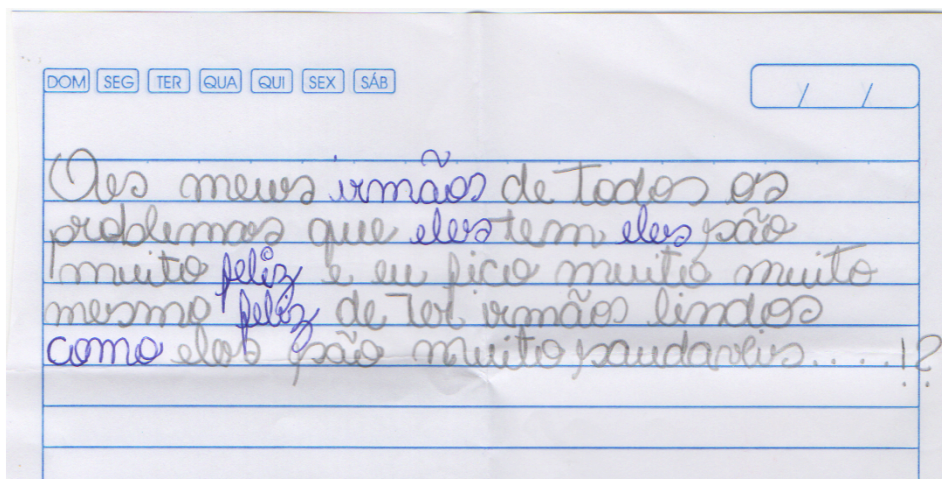 DOM SEG TER QUA QUI SEX SÁB
/ /
Os meus irmãos de todos os
problemas que eles tem eles são
muito feliz e eu fico muito muito
mesmo feliz de ter irmãos lindos
como eles são muito saudaveis.....!?